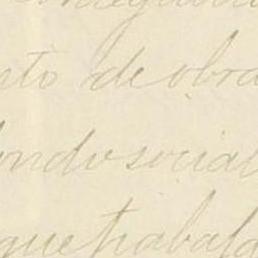 nto de obra
ondo social
que trabaja